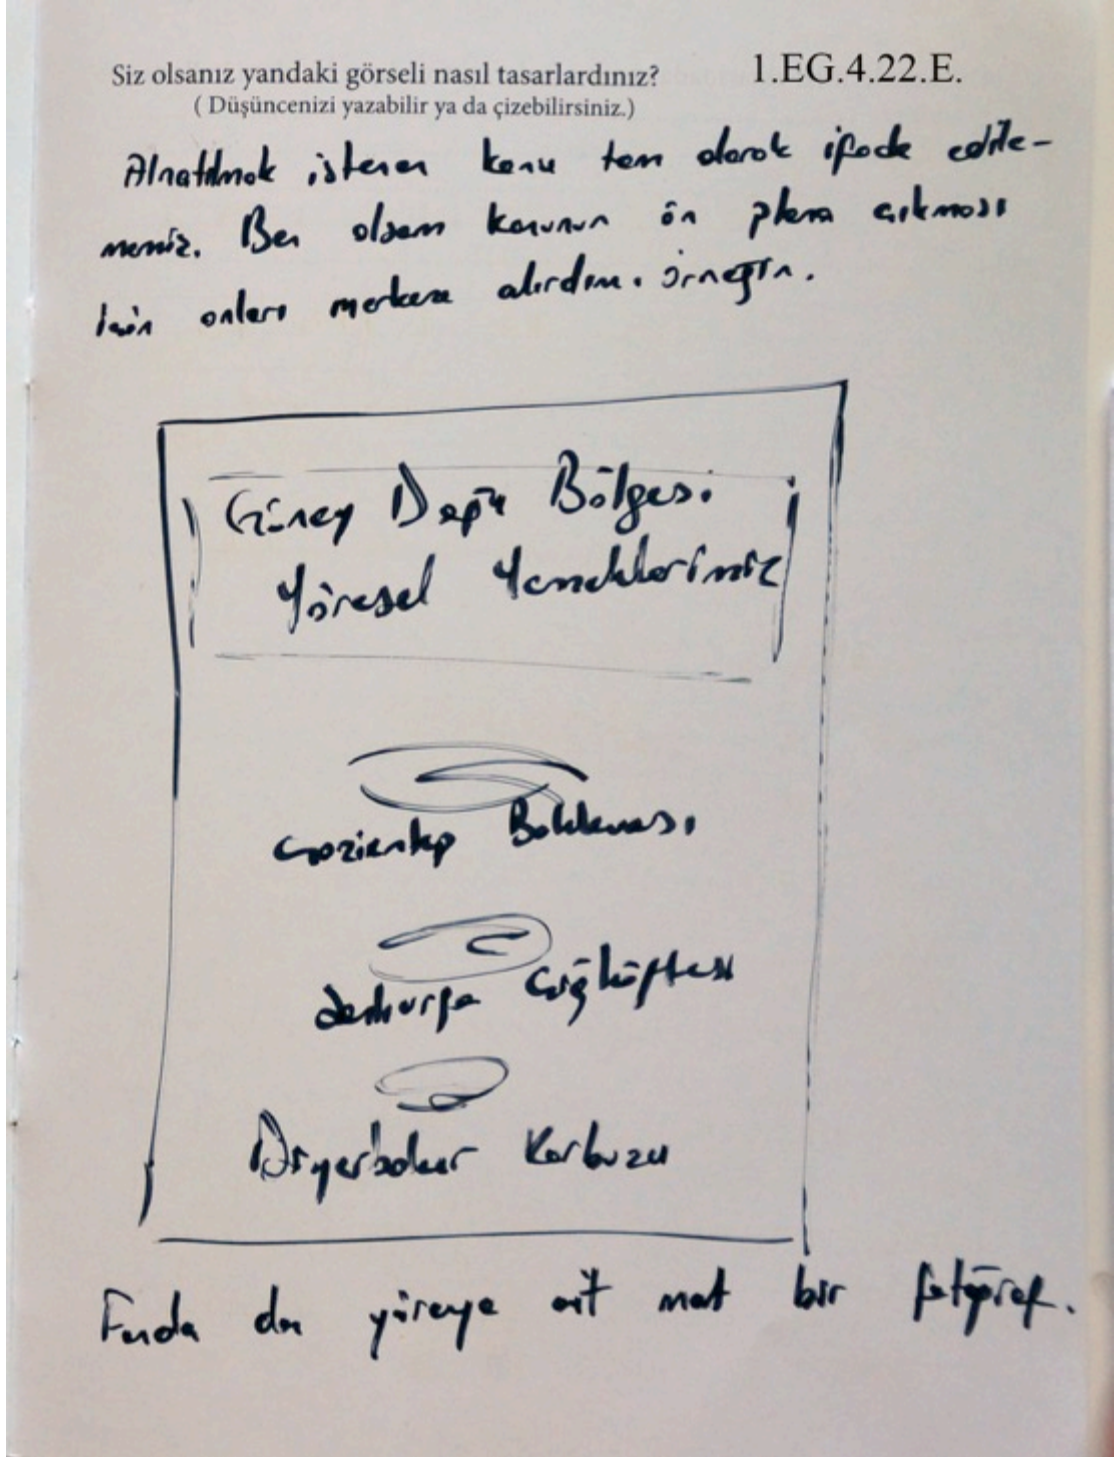 Siz olsanız yandaki görseli nasıl tasarlardınız? 1.EG.4.22.E.
( Düşüncenizi yazabilir ya da çizebilirsiniz.)
Alnatılmak istenen konu tam olarak ifade edile-
memiş. Ben olsam konunun ön plana çıkması
için onları merkeze alırdım. örneğin.
Güney Doğu Bölgesi
Yöresel Yemeklerimiz
Gaziantep Baklavası
Şanlıurfa Çiğköftesi
Diyarbakır Karbuzu
Fonda da yöreye ait mat bir fotoğraf.